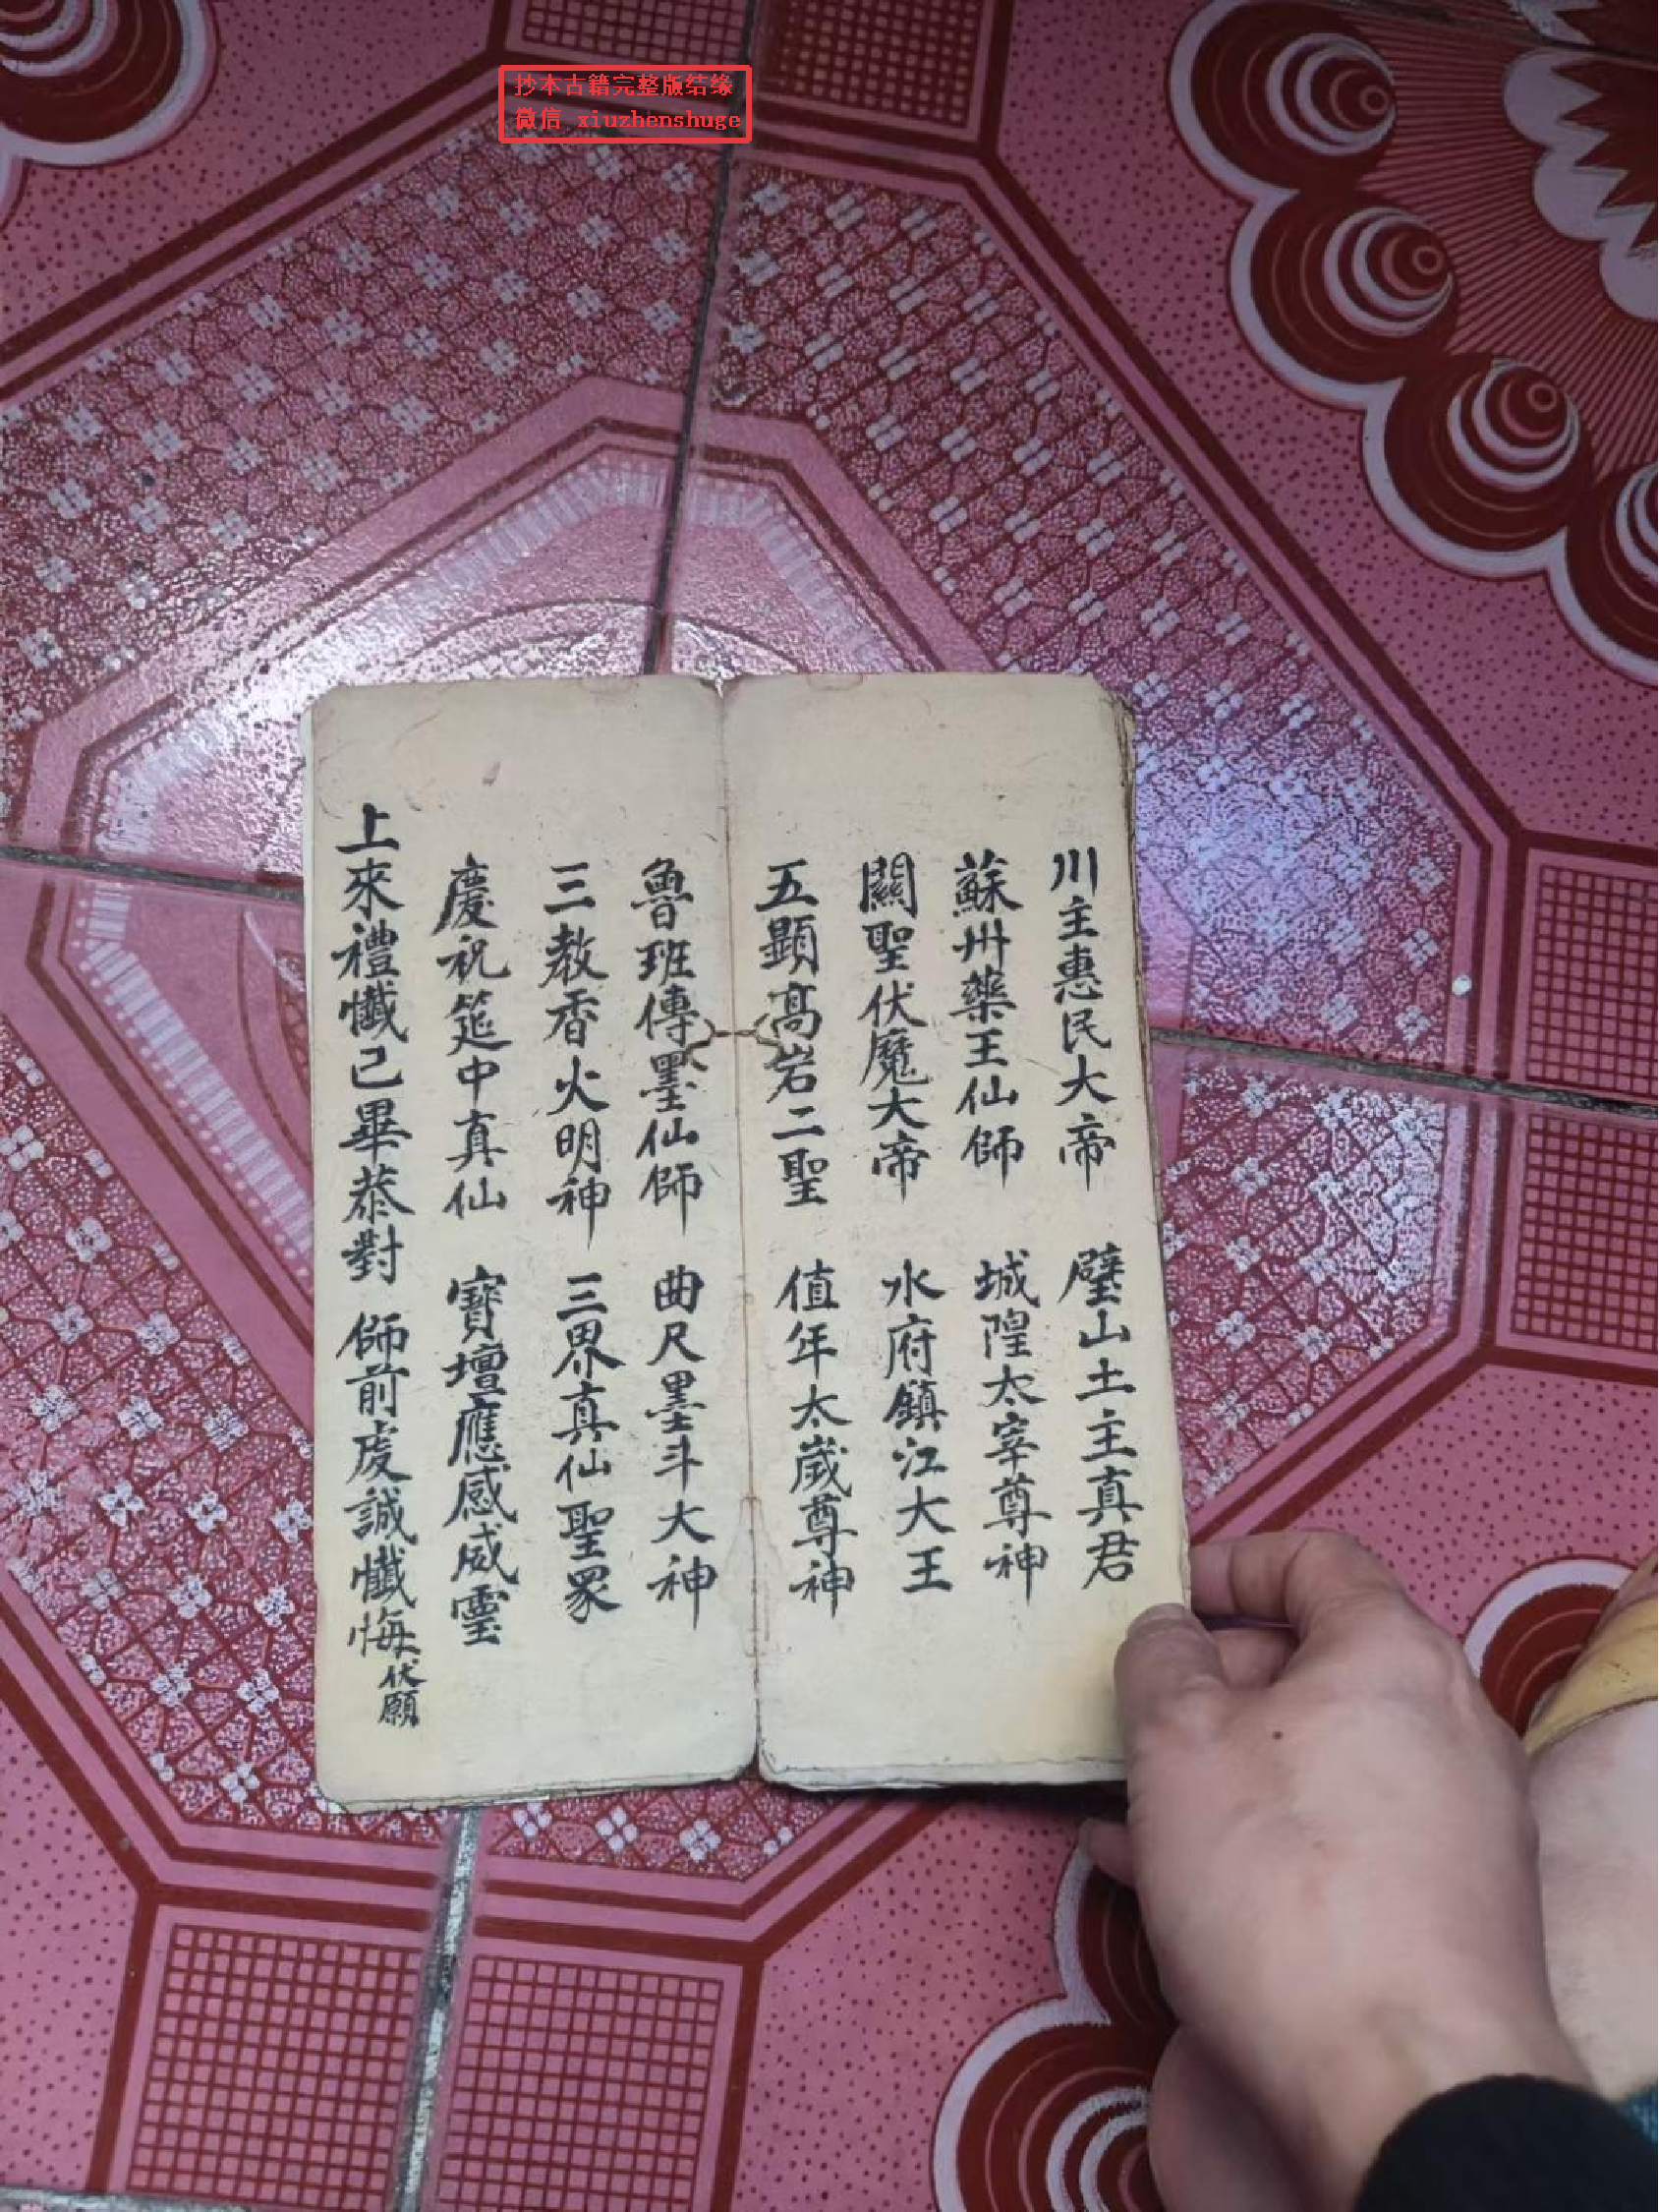 抄本古籍完整版结缘
微信 xiuzhenshuge
川主惠民大帝 璧山土主真君
蘇州藥王仙師 城隍太宰尊神
關聖伏魔大帝 水府鎮江大王
五顯高岩二聖 值年太歲尊神
魯班傳墨仙師 曲尺墨斗大神
三教香火明神 三界真仙聖眾
慶祝筵中真仙 寶壇應感威靈
上來禮懺已畢恭對 師前虔誠懺悔伏願